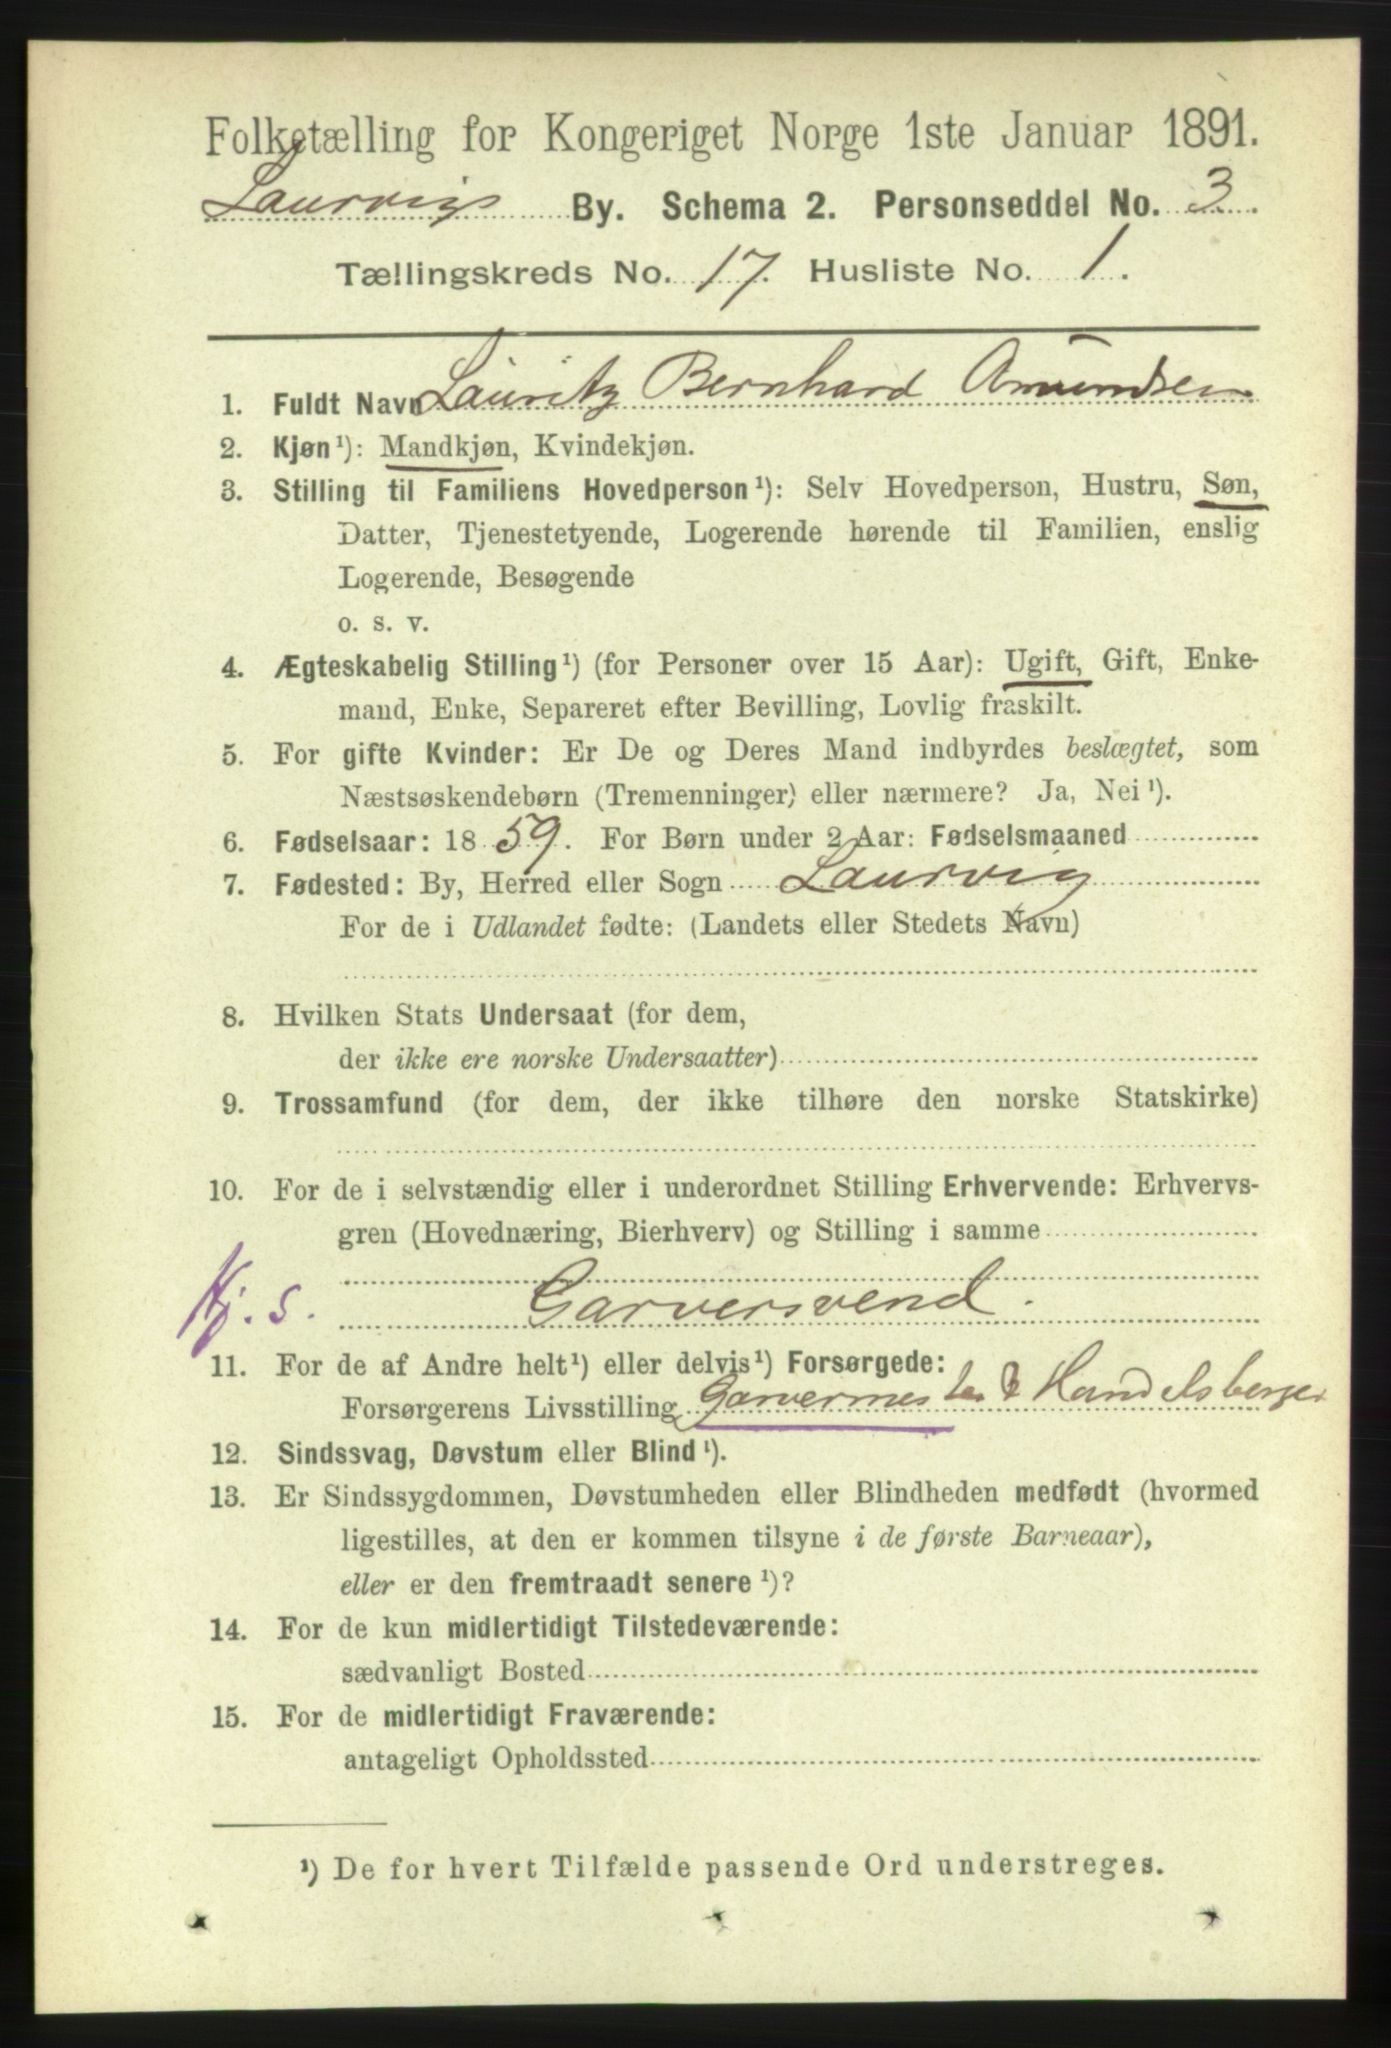 Folketælling for Kongeriget Norge 1ste Januar 1891.
Laurvigs By. Schema 2. Personseddel No. 3
Tællingskreds No. 17. Husliste No. 1.
1. Fuldt Navn Lauritz Bernhard Amundsen
2. Kjøn ¹): Mandkjøn, Kvindekjøn.
3. Stilling til Familiens Hovedperson ¹): Selv Hovedperson, Hustru, Søn,
Datter, Tjenestetyende, Logerende hørende til Familien, enslig
Logerende, Besøgende
o. s. v.
4. Ægteskabelig Stilling ¹) (for Personer over 15 Aar): Ugift, Gift, Enke-
mand, Enke, Separeret efter Bevilling, Lovlig fraskilt.
5. For gifte Kvinder: Er De og Deres Mand indbyrdes beslægtet, som
Næstsøskendebørn (Tremenninger) eller nærmere? Ja, Nei ¹).
6. Fødselsaar: 1859. For Børn under 2 Aar: Fødselsmaaned
7. Fødested: By, Herred eller Sogn Laurvig
For de i Udlandet fødte: (Landets eller Stedets Navn)
8. Hvilken Stats Undersaat (for dem,
der ikke ere norske Undersaatter)
9. Trossamfund (for dem, der ikke tilhøre den norske Statskirke)
10. For de i selvstændig eller i underordnet Stilling Erhvervende: Erhvervs-
gren (Hovednæring, Bierhverv) og Stilling i samme
Hj. s. Garversvend.
11. For de af Andre helt ¹) eller delvis ¹) Forsørgede:
Forsørgerens Livsstilling Garvermester & Handelsborger
12. Sindssvag, Døvstum eller Blind ¹).
13. Er Sindssygdommen, Døvstumheden eller Blindheden medfødt (hvormed
ligestilles, at den er kommen tilsyne i de første Barneaar),
eller er den fremtraadt senere ¹)?
14. For de kun midlertidigt Tilstedeværende:
sædvanligt Bosted
15. For de midlertidigt Fraværende:
antageligt Opholdssted
¹) De for hvert Tilfælde passende Ord understreges.